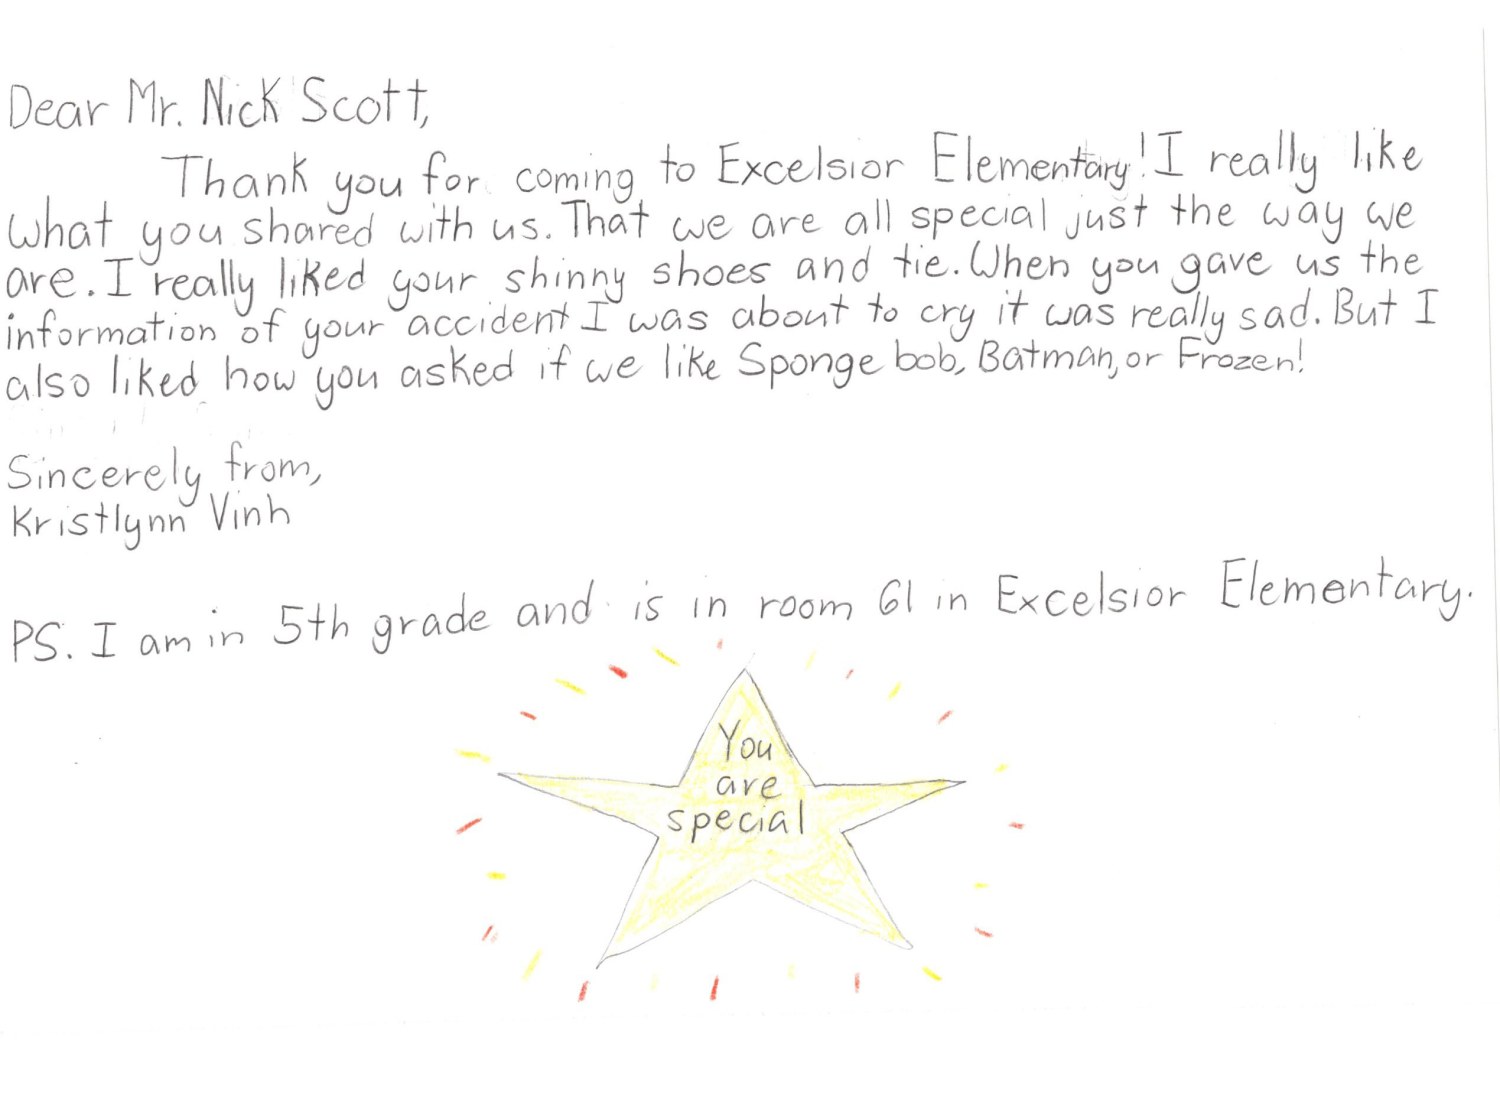 Dear Mr. Nick Scott,
Thank you for coming to Excelsior Elementary! I really like
what you shared with us. That we are all special just the way we
are. I really liked your shinny shoes and tie. When you gave us the
information of your accident I was about to cry it was really sad. But I
also liked how you asked if we like Sponge bob, Batman, or Frozen!
Sincerely from,
Kristlynn Vinh
PS. I am in 5th grade and is in room 61 in Excelsior Elementary.
You
are
special